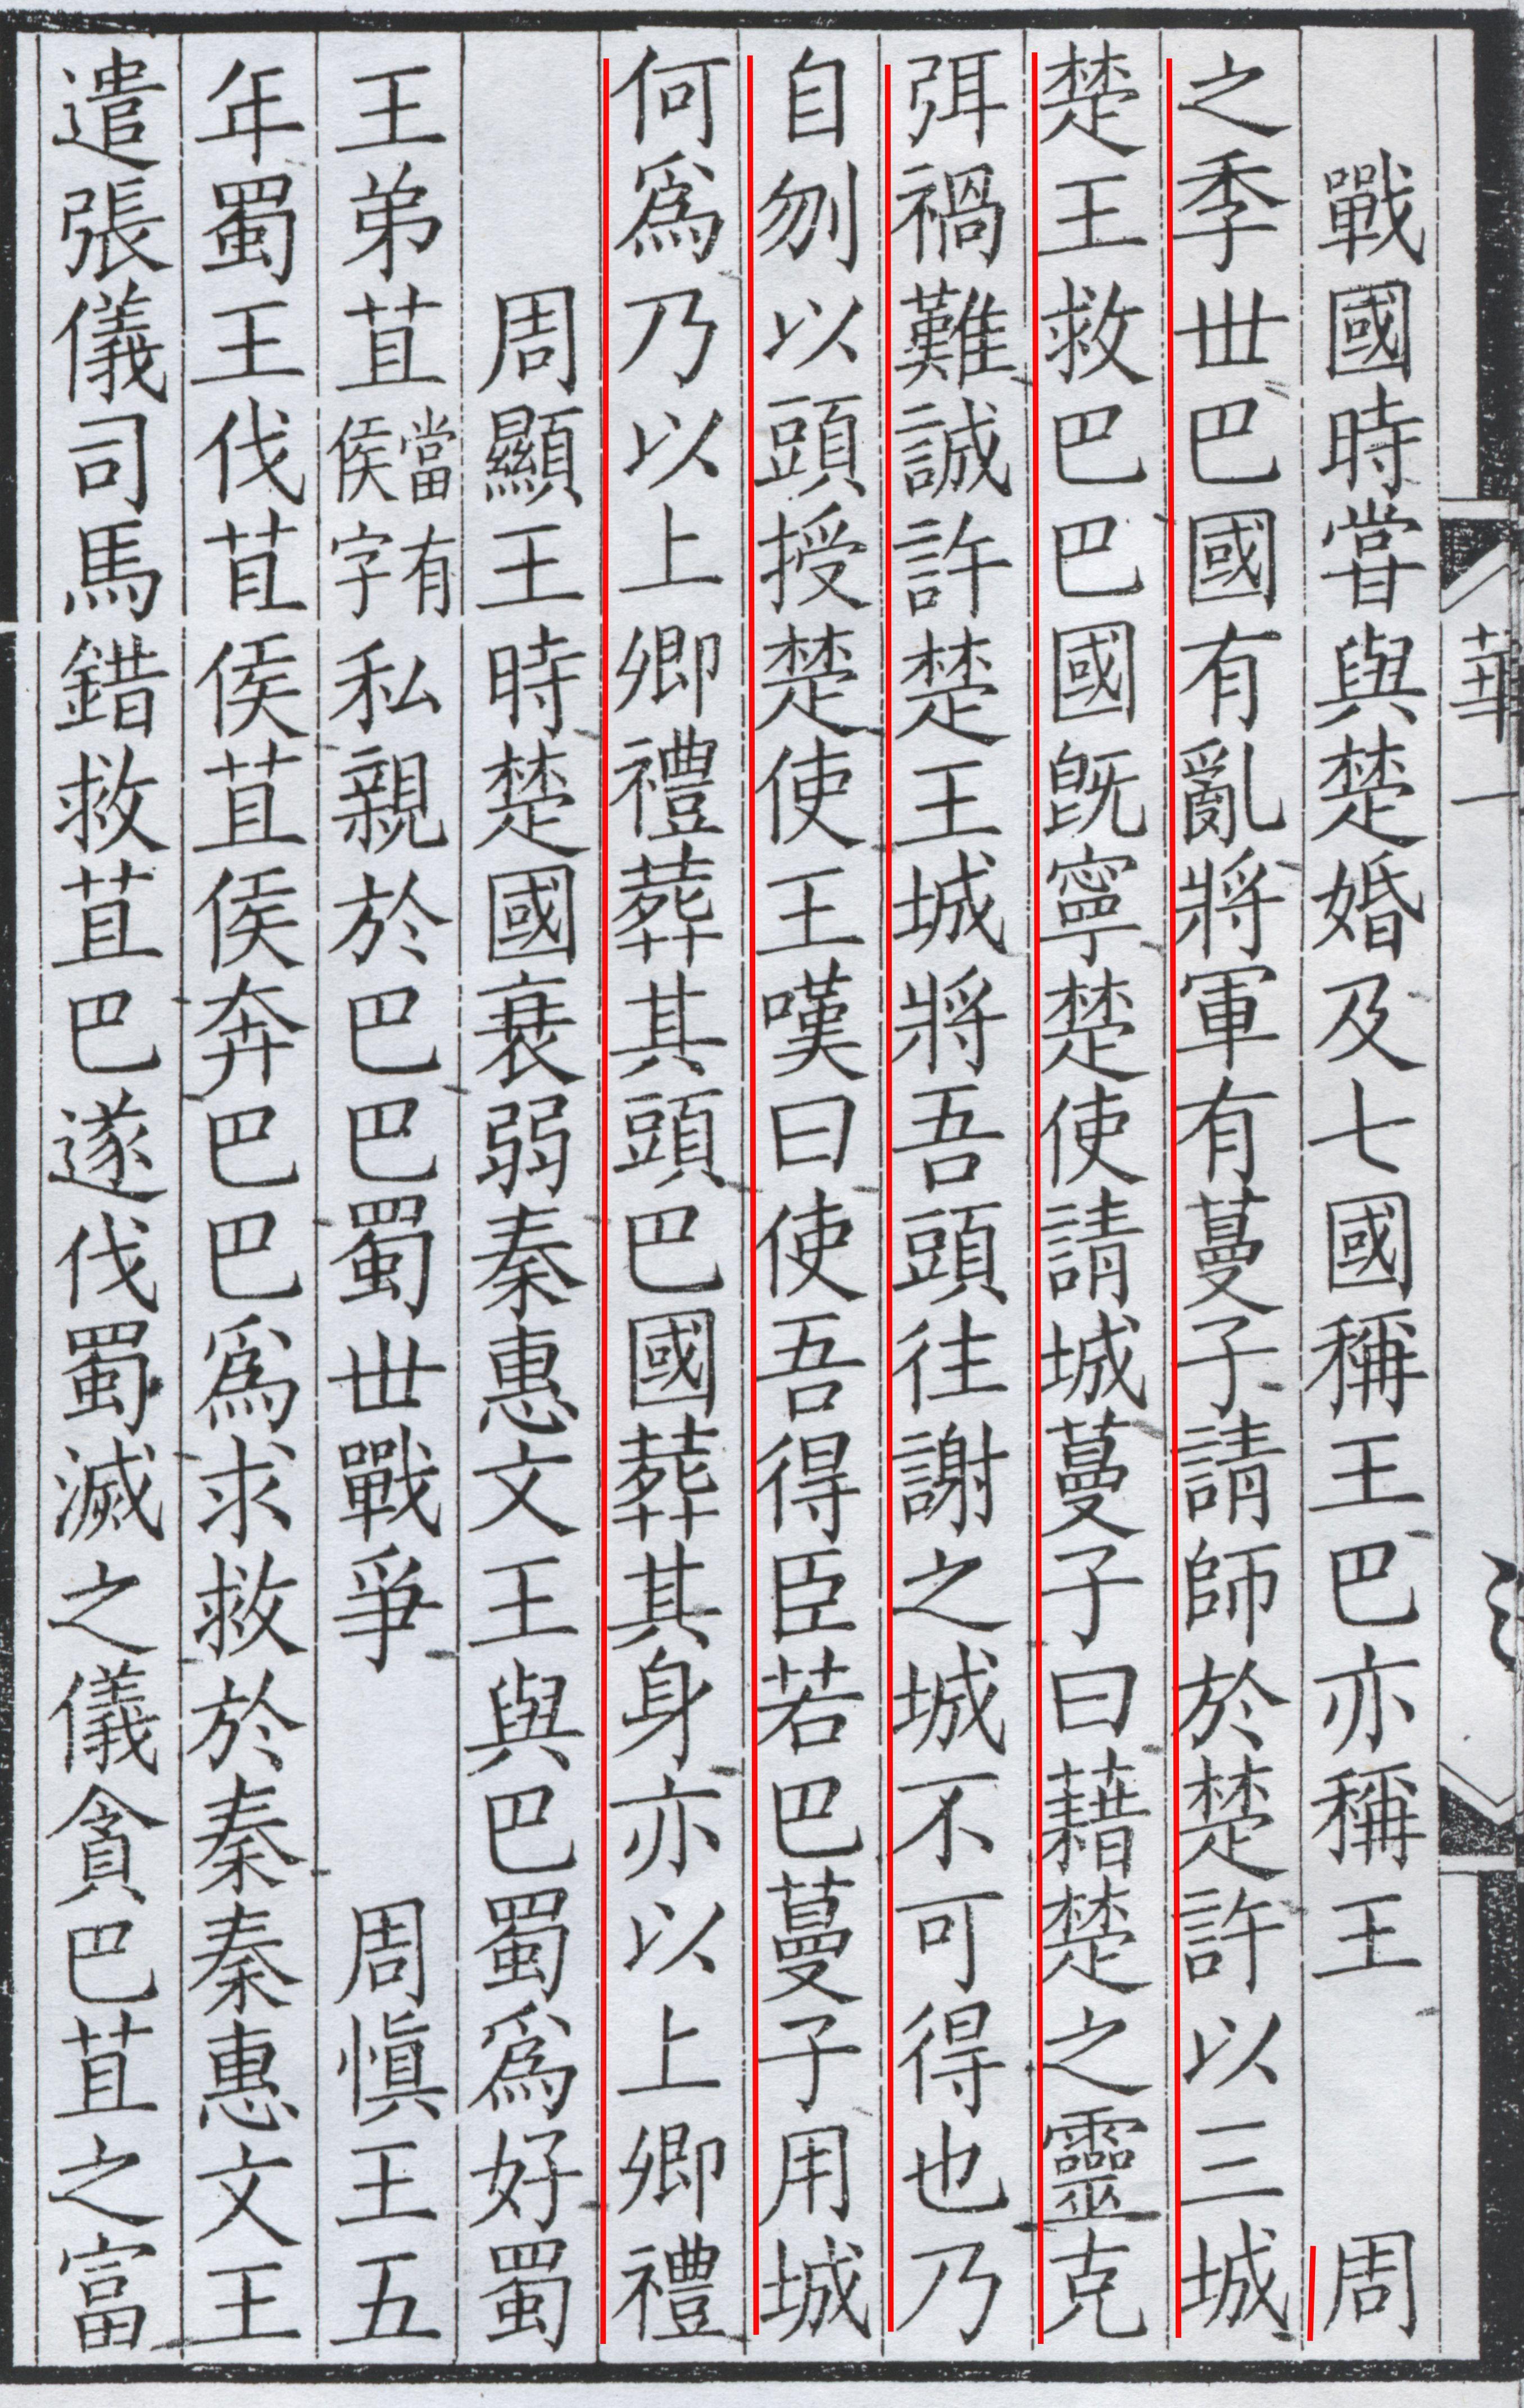 華一
戰國時甞與楚婚及七國稱王巴亦稱王　周
之季丗巴國有亂將軍有蔓子請師於楚許以三城
楚王救巴巴國旣寧楚使請城蔓子曰藉楚之靈克
弭禍難誠許楚王城將吾頭往謝之城不可得也乃
自刎以頭授楚使王嘆曰使吾得臣若巴蔓子用城
何爲乃以上卿禮葬其頭巴國葬其身亦以上卿禮
周顯王時楚國衰弱秦惠文王與巴蜀爲好蜀
王弟苴當有侯字私親於巴巴蜀丗戰爭　周愼王五
年蜀王伐苴侯苴侯奔巴巴爲求救於秦秦惠文王
遣張儀司馬錯救苴巴遂伐蜀滅之儀貪巴苴之富